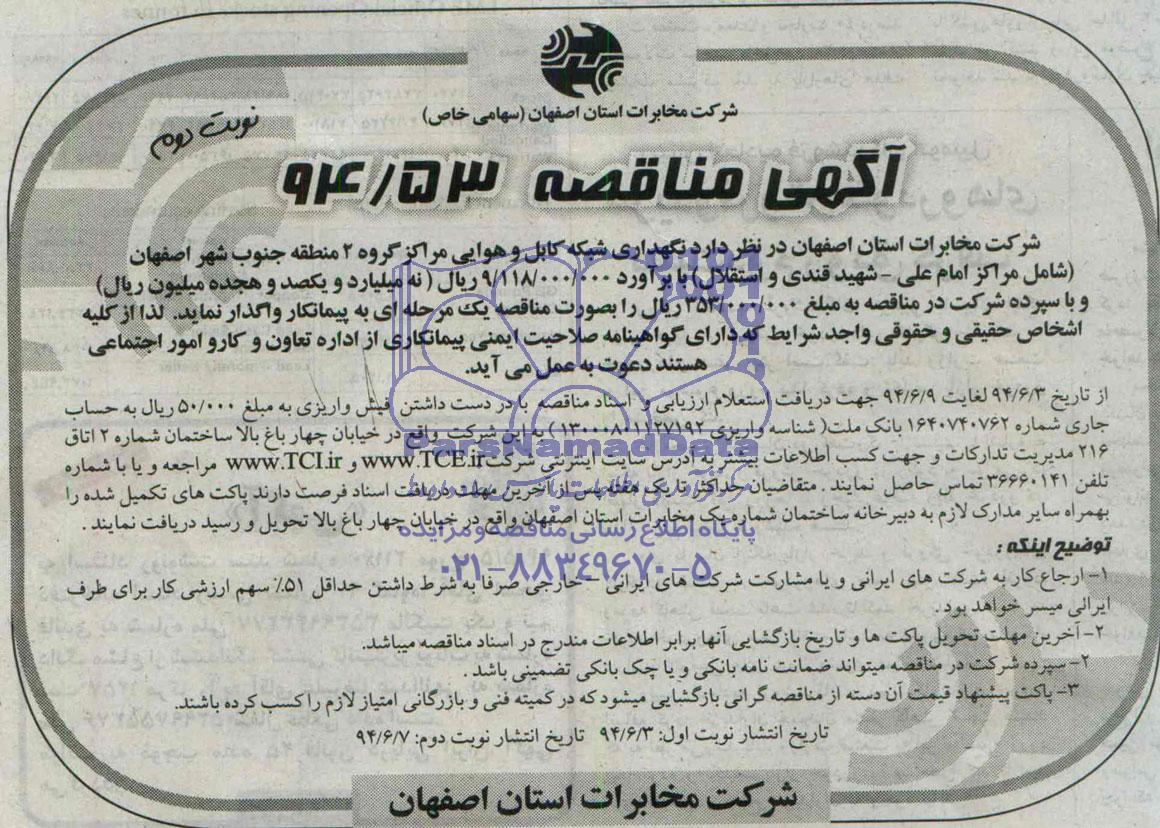 شرکت مخابرات استان اصفهان (سهامی خاص)
نوبت دوم
آگهی مناقصه ۹۴/۵۳
شرکت مخابرات استان اصفهان در نظر دارد نگهداری شبکه کابل و هوایی مراکز گروه ۲ منطقه جنوب شهر اصفهان
(شامل مراکز امام علی - شهید قندی و استقلال) با برآورد ۹/۱۱۸/۰۰۰/۰۰۰ ریال ( نه میلیارد و یکصد و هجده میلیون ریال)
و با سپرده شرکت در مناقصه به مبلغ ۳۵۳/۰۰۰/۰۰۰ ریال را بصورت مناقصه یک مرحله ای به پیمانکار واگذار نماید. لذا از کلیه
اشخاص حقیقی و حقوقی واجد شرایط که دارای گواهینامه صلاحیت ایمنی پیمانکاری از اداره تعاون و کار و امور اجتماعی
هستند دعوت به عمل می آید.
از تاریخ ۹۴/۶/۳ لغایت ۹۴/۶/۹ جهت دریافت استعلام ارزیابی و اسناد مناقصه با در دست داشتن فیش واریزی به مبلغ ۵۰/۰۰۰ ریال به حساب
جاری شماره ۱۶۴۰۷۴۰۷۶۲ بانک ملت( شناسه واریزی ۱۳۰۰۰۸۰۱۱۲۷۱۹۲ ) به این شرکت واقع در خیابان چهار باغ بالا ساختمان شماره ۲ اتاق
۲۱۶ مدیریت تدارکات و جهت کسب اطلاعات بیشتر به آدرس سایت اینترنتی شرکت www.TCE.ir و www.TCI.ir مراجعه و یا با شماره
تلفن ۳۶۶۶۰۱۴۱ تماس حاصل نمایند . متقاضیان حداکثر تا یک هفته پس از آخرین مهلت دریافت اسناد فرصت دارند پاکت های تکمیل شده را
بهمراه سایر مدارک لازم به دبیرخانه ساختمان شماره یک مخابرات استان اصفهان واقع در خیابان چهار باغ بالا تحویل و رسید دریافت نمایند .
توضیح اینکه :
۱- ارجاع کار به شرکت های ایرانی و یا مشارکت شرکت های ایرانی - خارجی صرفا به شرط داشتن حداقل ۵۱٪ سهم ارزشی کار برای طرف
ایرانی میسر خواهد بود.
۲- آخرین مهلت تحویل پاکت ها و تاریخ بازگشایی آنها برابر اطلاعات مندرج در اسناد مناقصه میباشد.
۲- سپرده شرکت در مناقصه میتواند ضمانت نامه بانکی و یا چک بانکی تضمینی باشد .
۳- پاکت پیشنهاد قیمت آن دسته از مناقصه گرانی بازگشایی میشود که در کمیته فنی و بازرگانی امتیاز لازم را کسب کرده باشند.
تاریخ انتشار نوبت اول: ۹۴/۶/۳ تاریخ انتشار نوبت دوم: ۹۴/۶/۷
شرکت مخابرات استان اصفهان
ParsNamadData
پایگاه اطلاع رسانی مناقصه و مزایده
۰۲۱-۸۸۳۴۹۶۷۰-۵